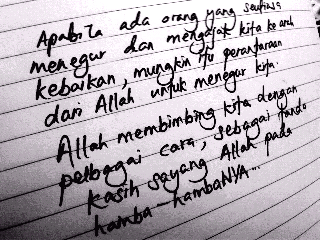 Apabila ada orang yang sentiasa
menegur dan mengajak kita ke arah
kebaikan, mungkin itu perantaraan
dari Allah untuk menegur kita.
Allah membimbing kita dengan
pelbagai cara, sebagai tanda
kasih sayang Allah pada
hamba-hambaNYA...